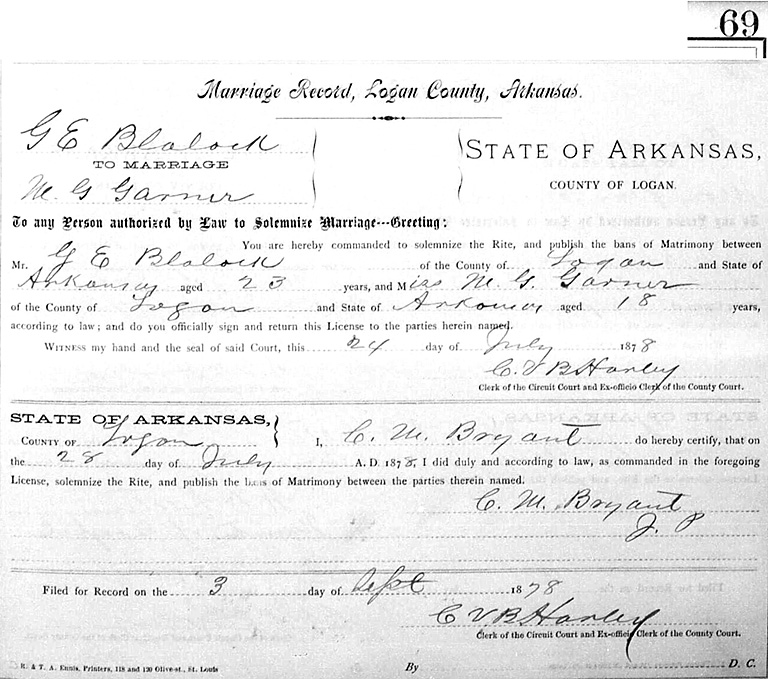 69
Marriage Record, Logan County, Arkansas.
G E Blalock
TO MARRIAGE
M. G Garner
STATE OF ARKANSAS,
COUNTY OF LOGAN.
To any Person authorized by Law to Solemnize Marriage---Greeting:
You are hereby commanded to solemnize the Rite, and publish the bans of Matrimony between
Mr. G E Blalock of the County of Logan and State of
Arkansas aged 23 years, and Miss M. G. Garner
of the County of Logan and State of Arkansas aged 18 years,
according to law; and do you officially sign and return this License to the parties herein named.
WITNESS my hand and the seal of said Court, this 24 day of July 1878
C. V B Harley
Clerk of the Circuit Court and Ex-officio Clerk of the County Court.
STATE OF ARKANSAS,
COUNTY OF Logan I, C. M. Bryant do hereby certify, that on
the 28 day of July A. D. 1878, I did duly and according to law, as commanded in the foregoing
License, solemnize the Rite, and publish the bans of Matrimony between the parties therein named.
C. M. Bryant
J. P
Filed for Record on the 3 day of Sept 1878
C V B Harley
Clerk of the Circuit Court and Ex-officio Clerk of the County Court.
R. & T. A. Ennis, Printers, 118 and 120 Olive-st., St. Louis
By D. C.